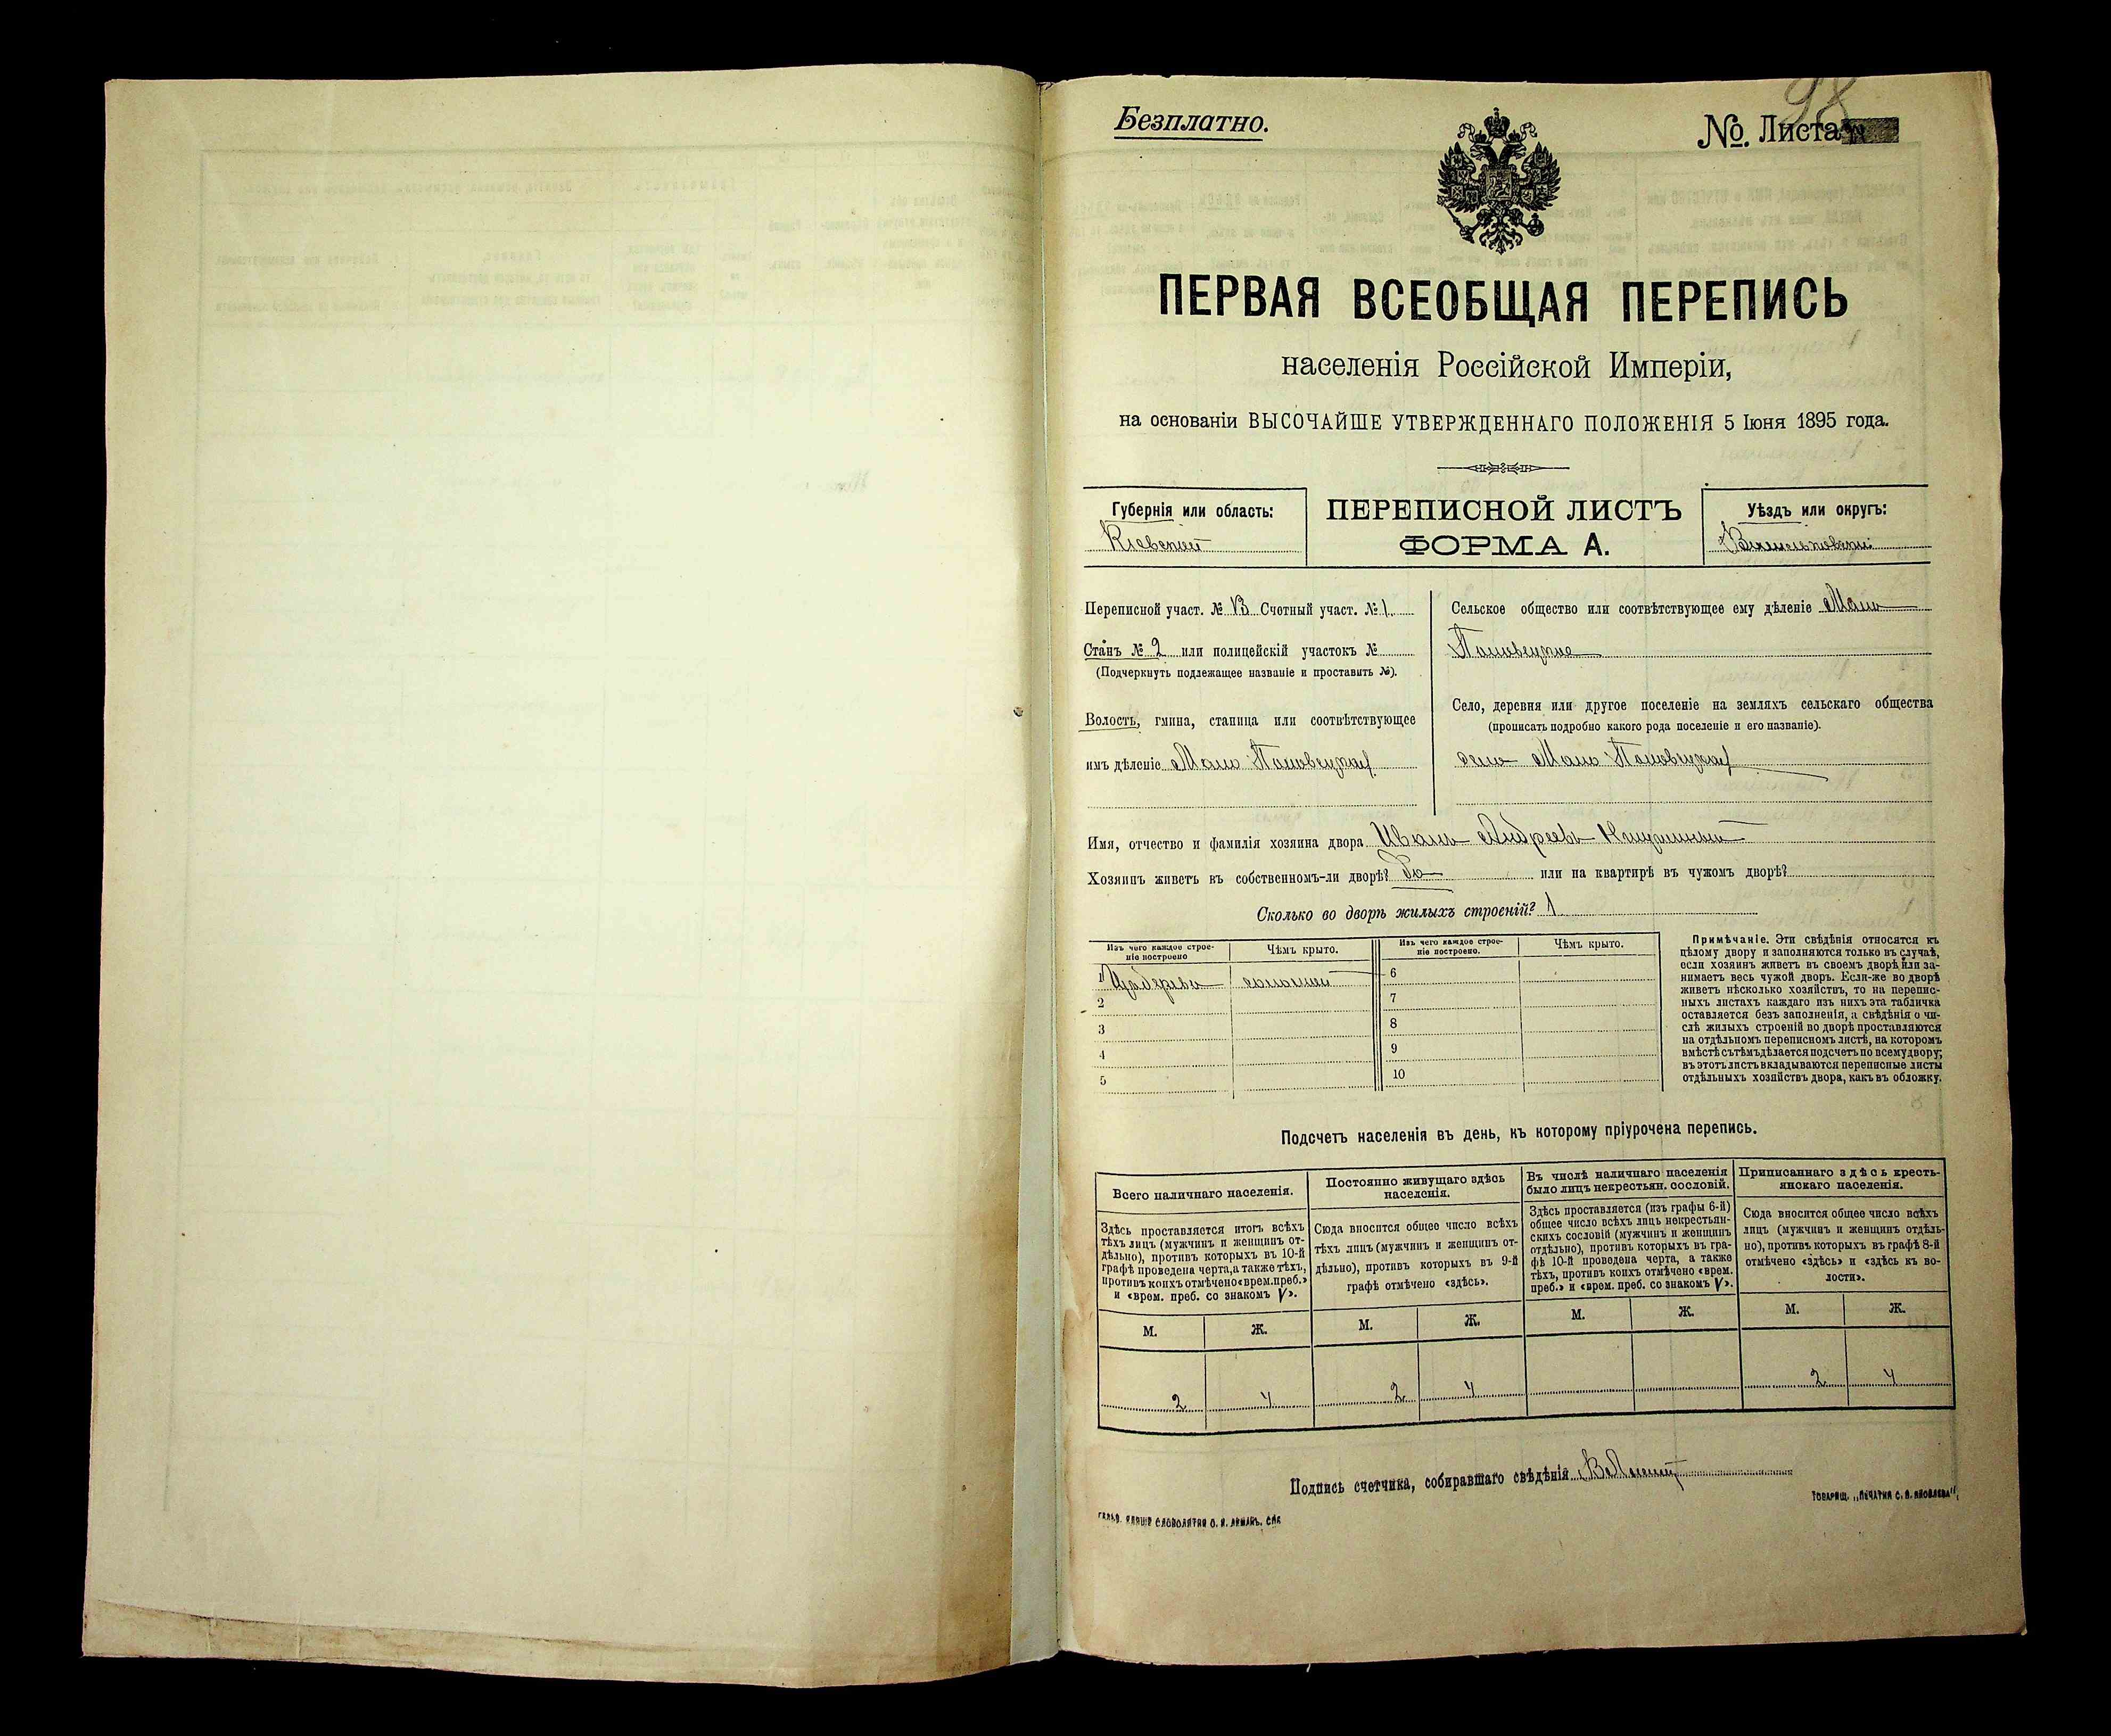 98
Безплатно.
№. Листа
ПЕРВАЯ ВСЕОБЩАЯ ПЕРЕПИСЬ
населенія Россійской Имперіи,
на основаніи ВЫСОЧАЙШЕ УТВЕРЖДЕННАГО ПОЛОЖЕНІЯ 5 Іюня 1895 года.
Губернія или область:
Кіевской
ПЕРЕПИСНОЙ ЛИСТЪ
ФОРМА А.
Уѣздъ или округъ:
Васильковскій
Переписной участ. № Счетный участ. № 1
Станъ № 2 или полицейскій участокъ №
(Подчеркнуть подлежащее названіе и проставить №).
Волость, гмина, станица или соотвѣтствующее
имъ дѣленіе Мало Половецкая
Сельское общество или соотвѣтствующее ему дѣленіе Мало
Половецкое
Село, деревня или другое поселеніе на земляхъ сельскаго общества
(прописать подробно какого рода поселеніе и его названіе).
село Мало Половецкая
Имя, отчество и фамилія хозяина двора Иванъ Андреевъ
Хозяинъ живетъ въ собственномъ-ли дворѣ? Да или на квартирѣ въ чужомъ дворѣ?
Сколько во дворѣ жилыхъ строеній? 1
Изъ чего каждое строе-
ніе построено
Чѣмъ крыто.
Изъ чего каждое строе-
ніе построено.
Чѣмъ крыто.
1 Издерева соломой 6
2 7
3 8
4 9
5 10
Примѣчаніе. Эти свѣдѣнія относятся къ
цѣлому двору и заполняются только въ случаѣ,
если хозяинъ живетъ въ своемъ дворѣ или за-
нимаетъ весь чужой дворъ. Если-же во дворѣ
живетъ нѣсколько хозяйствъ, то на перепис-
ныхъ листахъ каждаго изъ нихъ эта табличка
оставляется безъ заполненія, а свѣдѣнія о чи-
слѣ жилыхъ строеній во дворѣ проставляются
на отдѣльномъ переписномъ листѣ, на которомъ
вмѣстѣ съ тѣмъ дѣлается подсчетъ по всему двору;
въ этотъ листъ вкладываются переписные листы
отдѣльныхъ хозяйствъ двора, какъ въ обложку.
Подсчетъ населенія въ день, къ которому пріурочена перепись.
Всего наличнаго населенія.
Здѣсь проставляется итогъ всѣхъ
тѣхъ лицъ (мужчинъ и женщинъ от-
дѣльно), противъ которыхъ въ 10-й
графѣ проведена черта, а также тѣхъ,
противъ коихъ отмѣчено «врем. преб.»
и «врем. преб. со знакомъ V».
Постоянно живущаго здѣсь
населенія.
Сюда вносится общее число всѣхъ
тѣхъ лицъ (мужчинъ и женщинъ от-
дѣльно), противъ которыхъ въ 9-й
графѣ отмѣчено «здѣсь».
Въ числѣ наличнаго населенія
было лицъ некрестьян. сословій.
Здѣсь проставляется (изъ графы 6-й)
общее число всѣхъ лицъ некрестьян-
скихъ сословій (мужчинъ и женщинъ
отдѣльно), противъ которыхъ въ гра-
фѣ 10-й проведена черта, а также
тѣхъ, противъ коихъ отмѣчено «врем.
преб.» и «врем. преб. со знакомъ V».
Приписаннаго здѣсь кресть-
янскаго населенія.
Сюда вносится общее число всѣхъ
лицъ (мужчинъ и женщинъ отдѣль-
но), противъ которыхъ въ графѣ 8-й
отмѣчено «здѣсь» и «здѣсь къ во-
лости».
М. Ж. М. Ж. М. Ж. М. Ж.
2 4 2 4 2 4
Подпись счетчика, собиравшаго свѣдѣнія
Товарищ. „Печатня С. П. Яковлева"